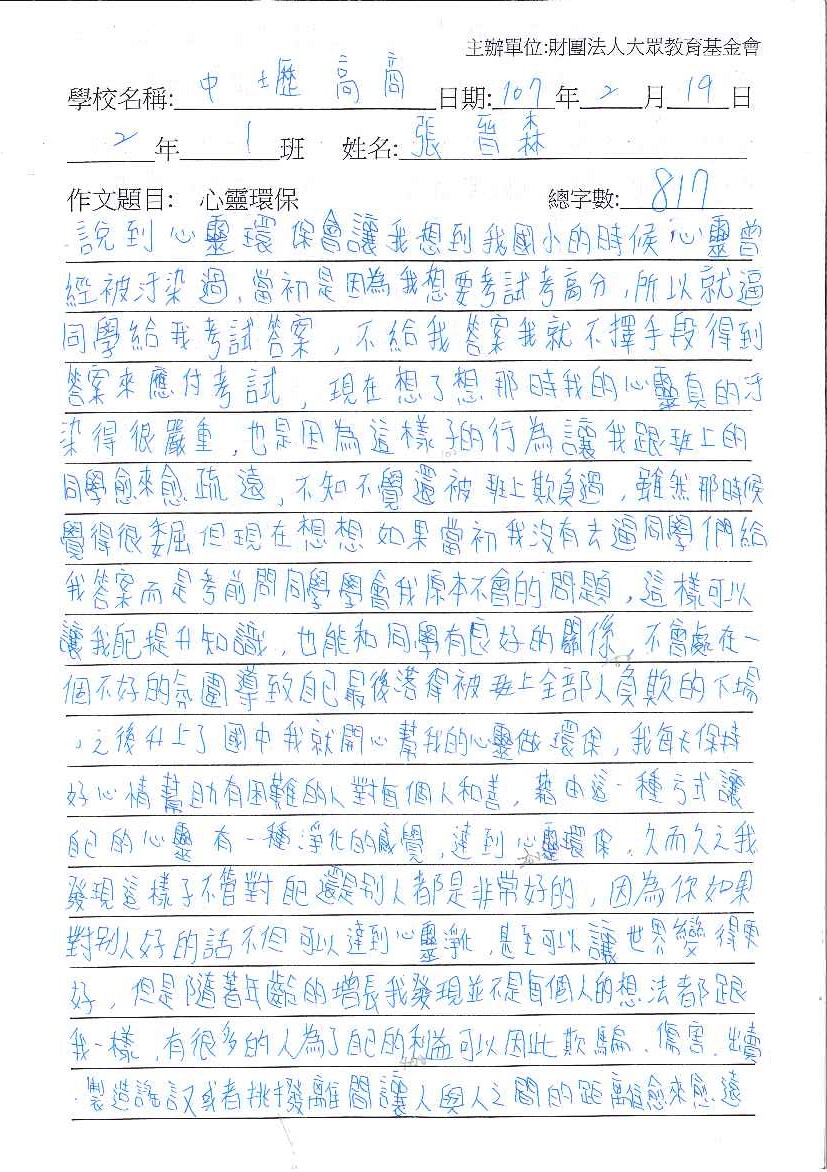 主辦單位:財團法人大眾教育基金會
學校名稱:中壢高商 日期:107年2月19日
2年1班 姓名:張晉森
作文題目: 心靈環保 總字數:817
說到心靈環保會讓我想到我國小的時候心靈曾
經被汙染過,當初是因為我想要考試考高分,所以就逼
同學給我考試答案,不給我答案我就不擇手段得到
答案來應付考試,現在想了想那時我的心靈真的汙
染得很嚴重,也是因為這樣子的行為讓我跟班上的
同學愈來愈疏遠,不知不覺還被班上欺負過,雖然那時候
覺得很委屈但現在想想如果當初我沒有去逼同學們給
我答案而是考前問同學學會我原本不會的問題,這樣可以
讓我自己提升知識,也能和同學有良好的關係,不會處在一
個不好的氛圍導致自己最後落得被班上全部人負欺的下場
,之後升上了國中我就開心幫我的心靈做環保,我每天保持
好心情幫助有困難的人對每個人和善,藉由這一種方式讓
自己的心靈有一種淨化的感覺,達到心靈環保,久而久之我
發現這樣子不管對自己還是別人都是非常好的,因為你如果
對別人好的話不但可以達到心靈淨化,甚至可以讓世界變得更
好,但是隨著年齡的增長我發現並不是每個人的想法都跟
我一樣,有很多的人為了自己的利益可以因此欺騙、傷害、出賣
、製造謠言又或者挑撥離間讓人與人之間的距離愈來愈遠